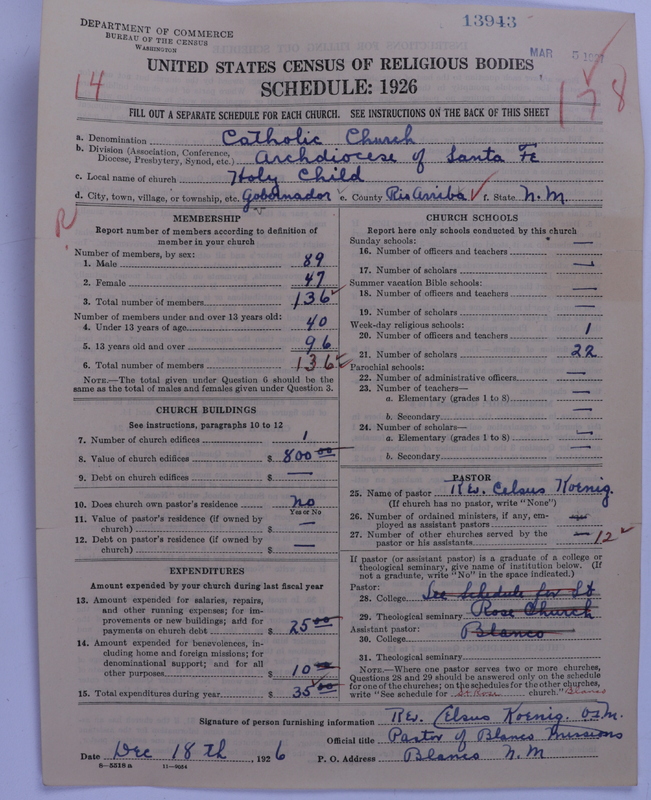 DEPARTMENT OF COMMERCE
BUREAU OF THE CENSUS
WASHINGTON
13943
MAR 5 192
UNITED STATES CENSUS OF RELIGIOUS BODIES
SCHEDULE: 1926
14
178
FILL OUT A SEPARATE SCHEDULE FOR EACH CHURCH. SEE INSTRUCTIONS ON THE BACK OF THIS SHEET
a. Denomination Catholic Church
b. Division (Association, Conference, Diocese, Presbytery, Synod, etc.) Archdiocese of Santa Fe
c. Local name of church Holy Child
d. City, town, village, or township, etc. Gobernador e. County Rio Arriba f. State N.M.
R
MEMBERSHIP
Report number of members according to definition of
member in your church
Number of members, by sex:
1. Male 89
2. Female 47
3. Total number of members 136
Number of members under and over 13 years old:
4. Under 13 years of age 40
5. 13 years old and over 96
6. Total number of members 136
NOTE.—The total given under Question 6 should be
same as the total of males and females given under Question 3.
CHURCH BUILDINGS
See instructions, paragraphs 10 to 12
7. Number of church edifices 1
8. Value of church edifices $ 800 00
9. Debt on church edifices $ —
10. Does church own pastor's residence no
Yes or No
11. Value of pastor's residence (if owned by
church) $ —
12. Debt on pastor's residence (if owned by
church) $ —
EXPENDITURES
Amount expended by your church during last fiscal year
13. Amount expended for salaries, repairs,
and other running expenses; for im-
provements or new buildings; and for
payments on church debt $ 25 00
14. Amount expended for benevolences, in-
cluding home and foreign missions; for
denominational support; and for all
other purposes $ 10 00
15. Total expenditures during year $ 35 00
CHURCH SCHOOLS
Report here only schools conducted by this church
Sunday schools:
16. Number of officers and teachers —
17. Number of scholars —
Summer vacation Bible schools:
18. Number of officers and teachers —
19. Number of scholars —
Week-day religious schools:
20. Number of officers and teachers 1
21. Number of scholars 22
Parochial schools:
22. Number of administrative officers —
23. Number of teachers—
a. Elementary (grades 1 to 8) —
b. Secondary —
24. Number of scholars—
a. Elementary (grades 1 to 8) —
b. Secondary —
PASTOR
25. Name of pastor Rev. Celsus Koenig.
(If church has no pastor, write "None")
26. Number of ordained ministers, if any, em-
ployed as assistant pastors —
27. Number of other churches served by the
pastor or his assistants — 12
If pastor (or assistant pastor) is a graduate of a college or
theological seminary, give name of institution below. (If
not a graduate, write "No" in the space indicated.)
Pastor:
28. College See Schedule for St
29. Theological seminary Rose Church
Assistant pastor:
30. College Blanco
31. Theological seminary
NOTE.—Where one pastor serves two or more churches,
Questions 28 and 29 should be answered only on the schedule
for one of the churches; on the schedules for the other churches,
write "See schedule for St Rose church." Blanco
Signature of person furnishing information Rev. Celsus Koenig. O.F.M.
Official title Pastor of Blanco Missions
Date Dec 18th 1926 P. O. Address Blanco N. M
8—5518a 11—9054